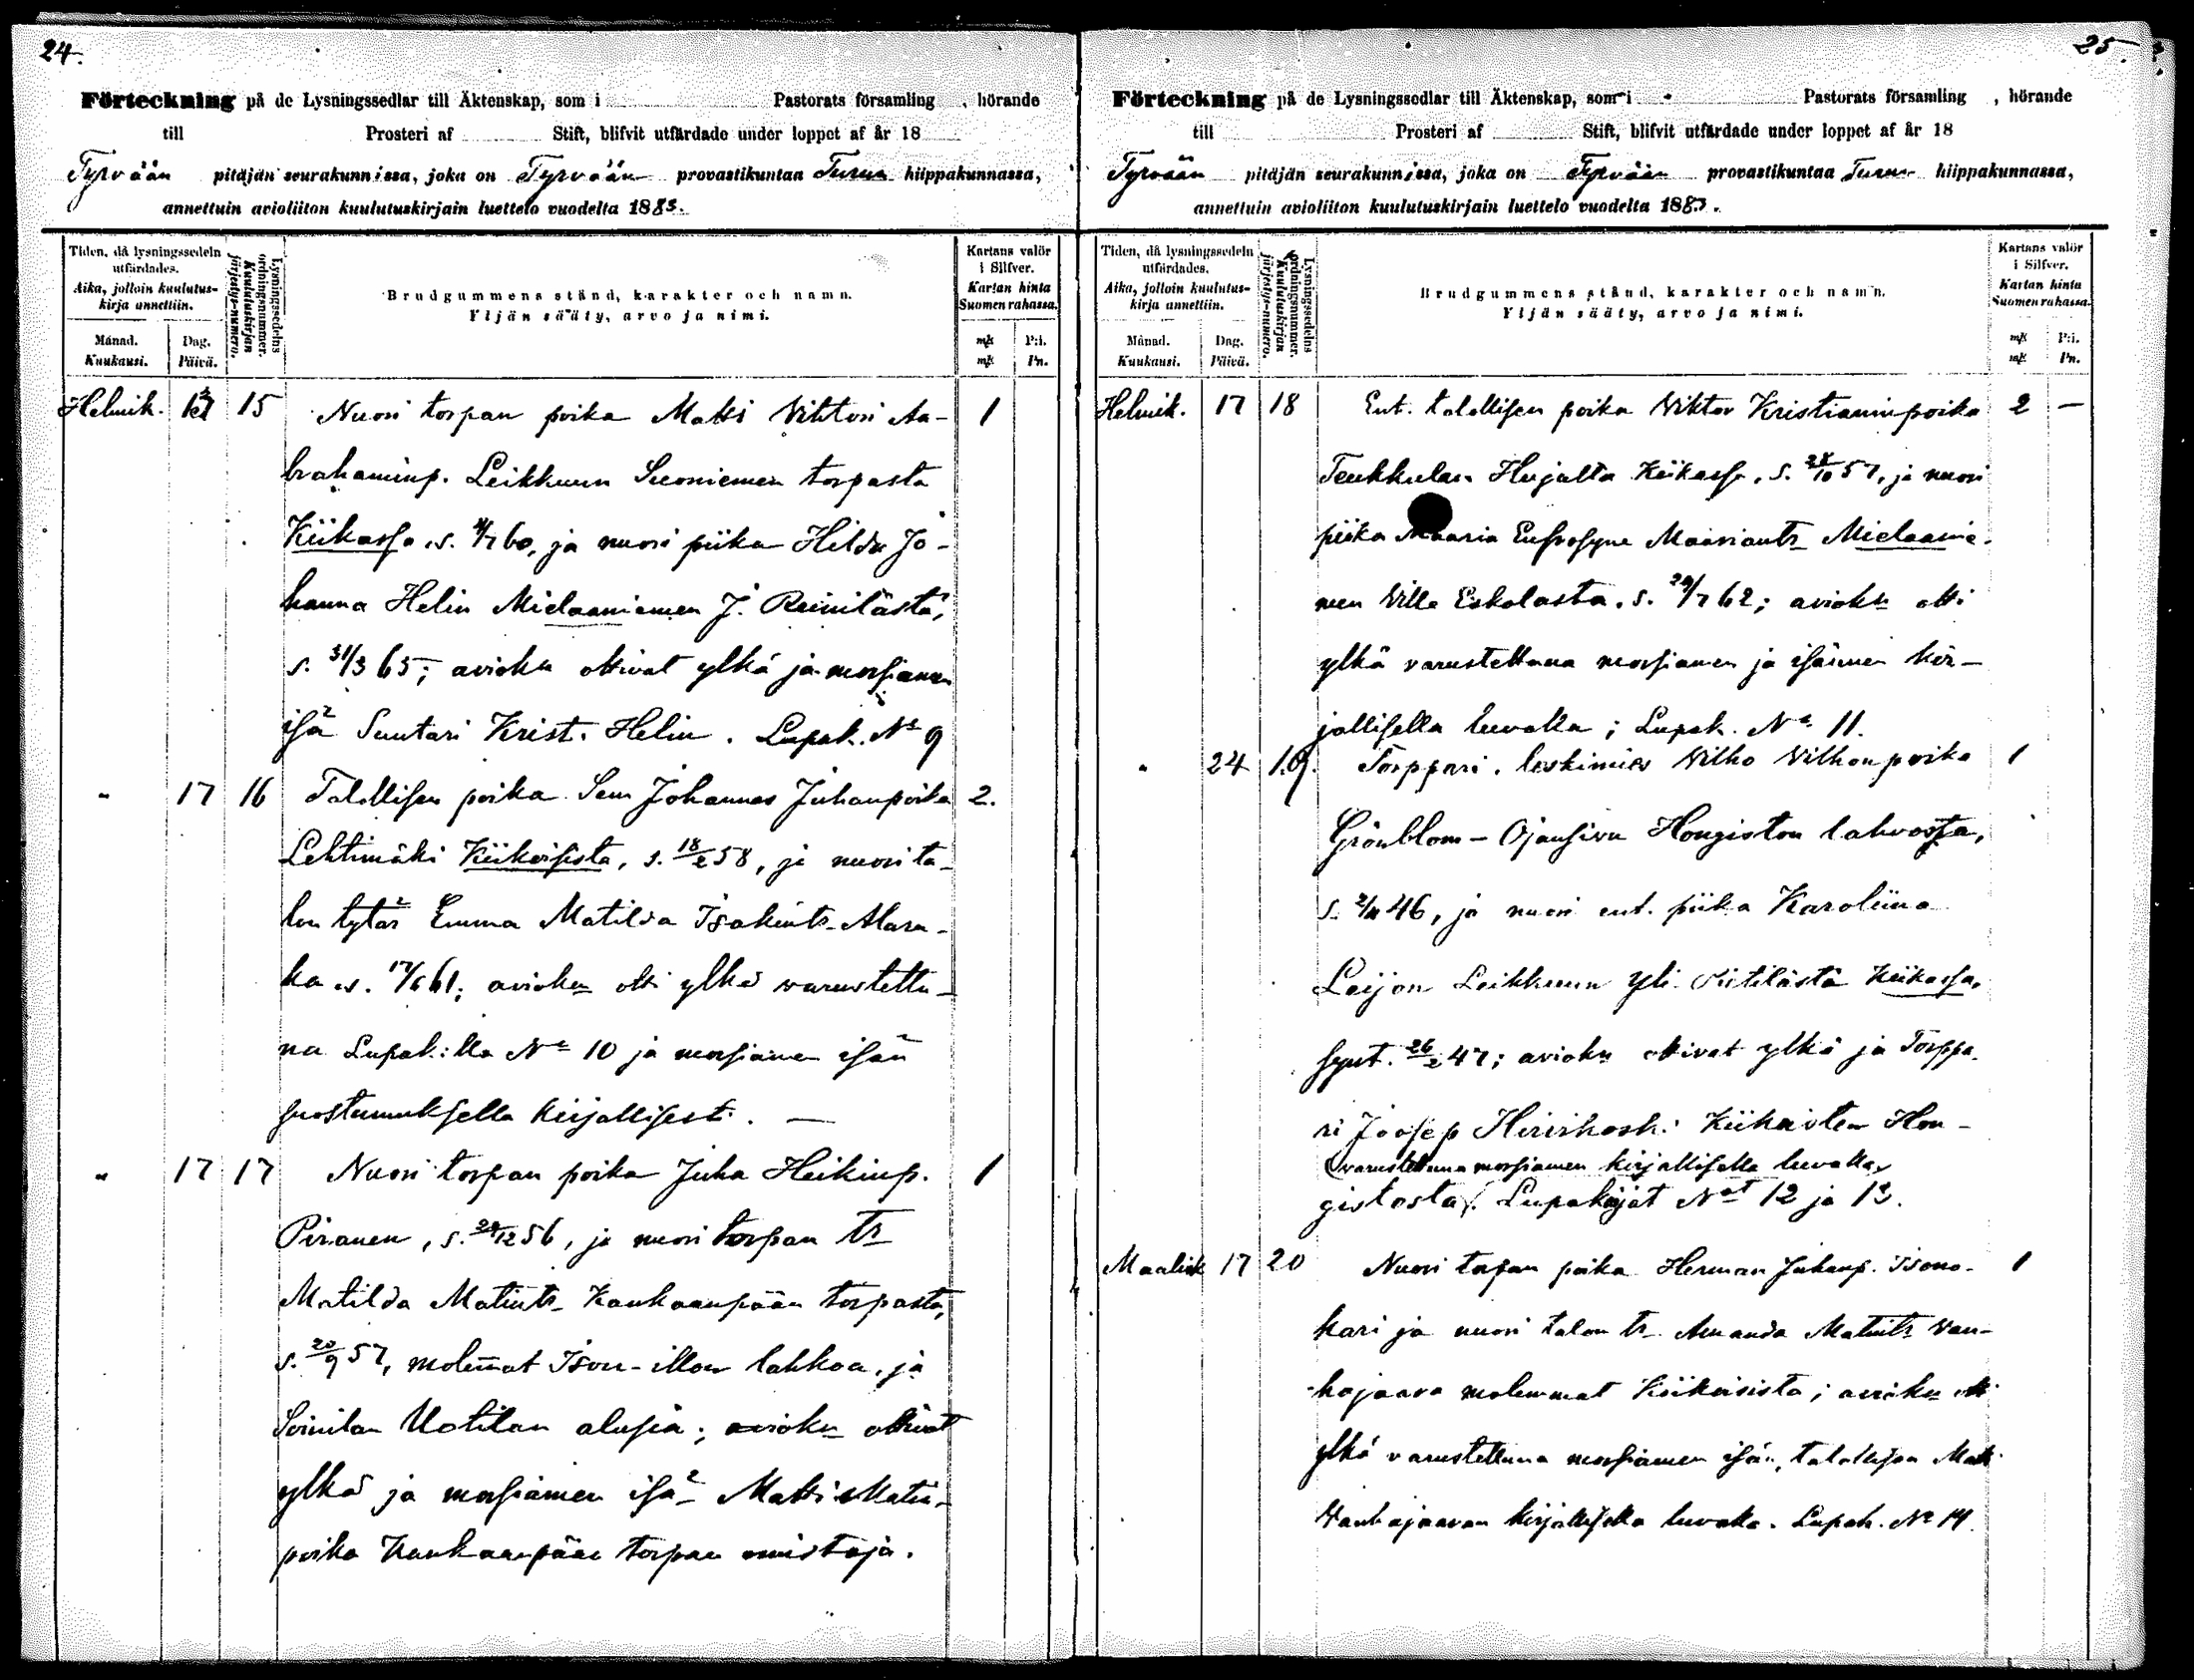 24.
Förteckning på de Lysningssedlar till Äktenskap, som i Pastorats församling , hörande
till Prosteri af Stift, blifvit utfärdade under loppet af år 18
Tyrvään pitäjän seurakunnissa, joka on Tyrvään provastikuntaa Turun hiippakunnassa,
annettuin avioliiton kuulutuskirjain luettelo vuodelta 1883.
Tiden, då lysningssedeln
utfärdades.
Aika, jolloin kuulutus-
kirja annettiin.
Månad.
Kuukausi.
Dag.
Päivä.
Lysningssedelns
ordningsnummer.
Kuulutuskirjan
järjestys-numero.
Brudgummens stånd, karakter och namn.
Yljän sääty, arvo ja nimi.
Kartans valör
i Silfver.
Kartan hinta
Suomen rahassa.
mk P:i.
mk Pn.
Helmik. 17 15 Nuori torpan poika Matti Vihtori Aa- 1
brahaminp. Leikkuun Suoniemen torpasta
Kiikassa, s. /7 60, ja nuori piika Hilda Jo-
hanna Helin Mielaaniemen J. Reinilästä,
s. 31/3 65; avioku ottivat ylkä ja morsiamen
isä Suutari Krist. Helin. Lupak. No 9
" 17 16 Talollisen poika Sem Johannes Juhanpoika 2.
Lehtimäki Kiikoisista, s. 18/2 58, ja nuori ta-
lon tytär Emma Matilda Isakints. Alara-
ka s. 17/6 61; avioku otti ylkä varustettu-
na Lupak:lla No 10 ja morsiamen isän
suostumuksella kirjallisesti. —
" 17 17 Nuori torpan poika Juha Heikinp. 1
Piranen, s. 29/12 56, ja nuori torpan tr
Matilda Matints. Kankaanpään torpasta,
s. 20/9 57, molemat Ison-illon lahkoa, ja
Soinilan Uotilan alusia; avioku ottivat
ylkä ja morsiamen isä Matti Matin-
poika Kankaanpään torpan omistaja.
25.
Förteckning på de Lysningssedlar till Äktenskap, som i Pastorats församling , hörande
till Prosteri af Stift, blifvit utfärdade under loppet af år 18
Tyrvään pitäjän seurakunnissa, joka on Tyrvään provastikuntaa Turun hiippakunnassa,
annettuin avioliiton kuulutuskirjain luettelo vuodelta 1883.
Tiden, då lysningssedeln
utfärdades.
Aika, jolloin kuulutus-
kirja annettiin.
Månad.
Kuukausi.
Dag.
Päivä.
Lysningssedelns
ordningsnummer.
Kuulutuskirjan
järjestys-numero.
Brudgummens stånd, karakter och namn.
Yljän sääty, arvo ja nimi.
Kartans valör
i Silfver.
Kartan hinta
Suomen rahassa.
mk P:i.
mk Pn.
Helmik. 17 18 Ent. talollisen poika Viktor Kristianinpoika 2 —
Teukkulan Hujalta Kiikassa, s. 28/10 57, ja nuori
piika Maaria Eufrosyne Maariants. Mielaanie-
men Ville Eskolasta, s. 29/7 62; avioku otti
ylkä varustettuna morsiamen ja isännen kir-
jallisella luvalla; Lupak. No 11.
" 24 19. Torppari, leskimies Vilho Vilhonpoika 1
Grönblom - Ojansivu Hongiston lahvosta,
s. 46, ja nuori ent. piika Karoliina
Leijon Leikkuun Yli Kiitilästä Kiikassa,
synt. 26/2 47; avioku ottivat ylkä ja Torppa-
ri Joosep Hirishoski Kiikoisten Hon-
(varustettuna morsiamen kirjallisella luvalla)
gistosta. Lupakirjat Not 12 ja 13.
Maalisk 17 20 Nuori torpan poika Herman Juhanp. Isono- 1
kari ja nuori talon tr. Amanda Matints Van-
hajaara molemmat Kiikoisista; avioku otti
ylkä varustettuna morsiamen isän, talollisen Matti
Vanhajaaran kirjallisella luvalla. Lupak. No 14.